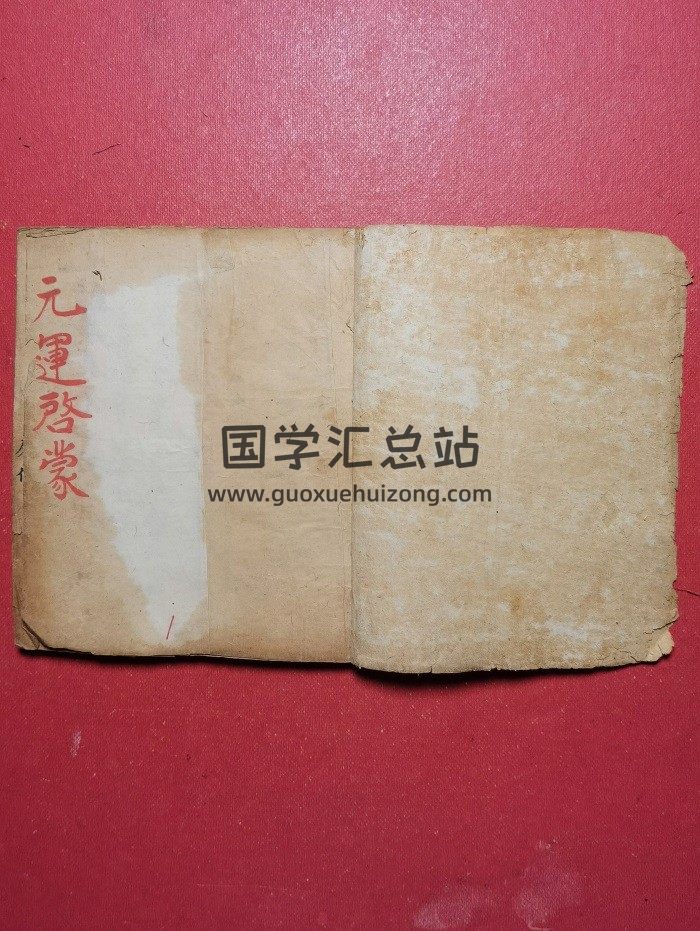 元運啓蒙
国学汇总站
www.guoxuehuizong.com